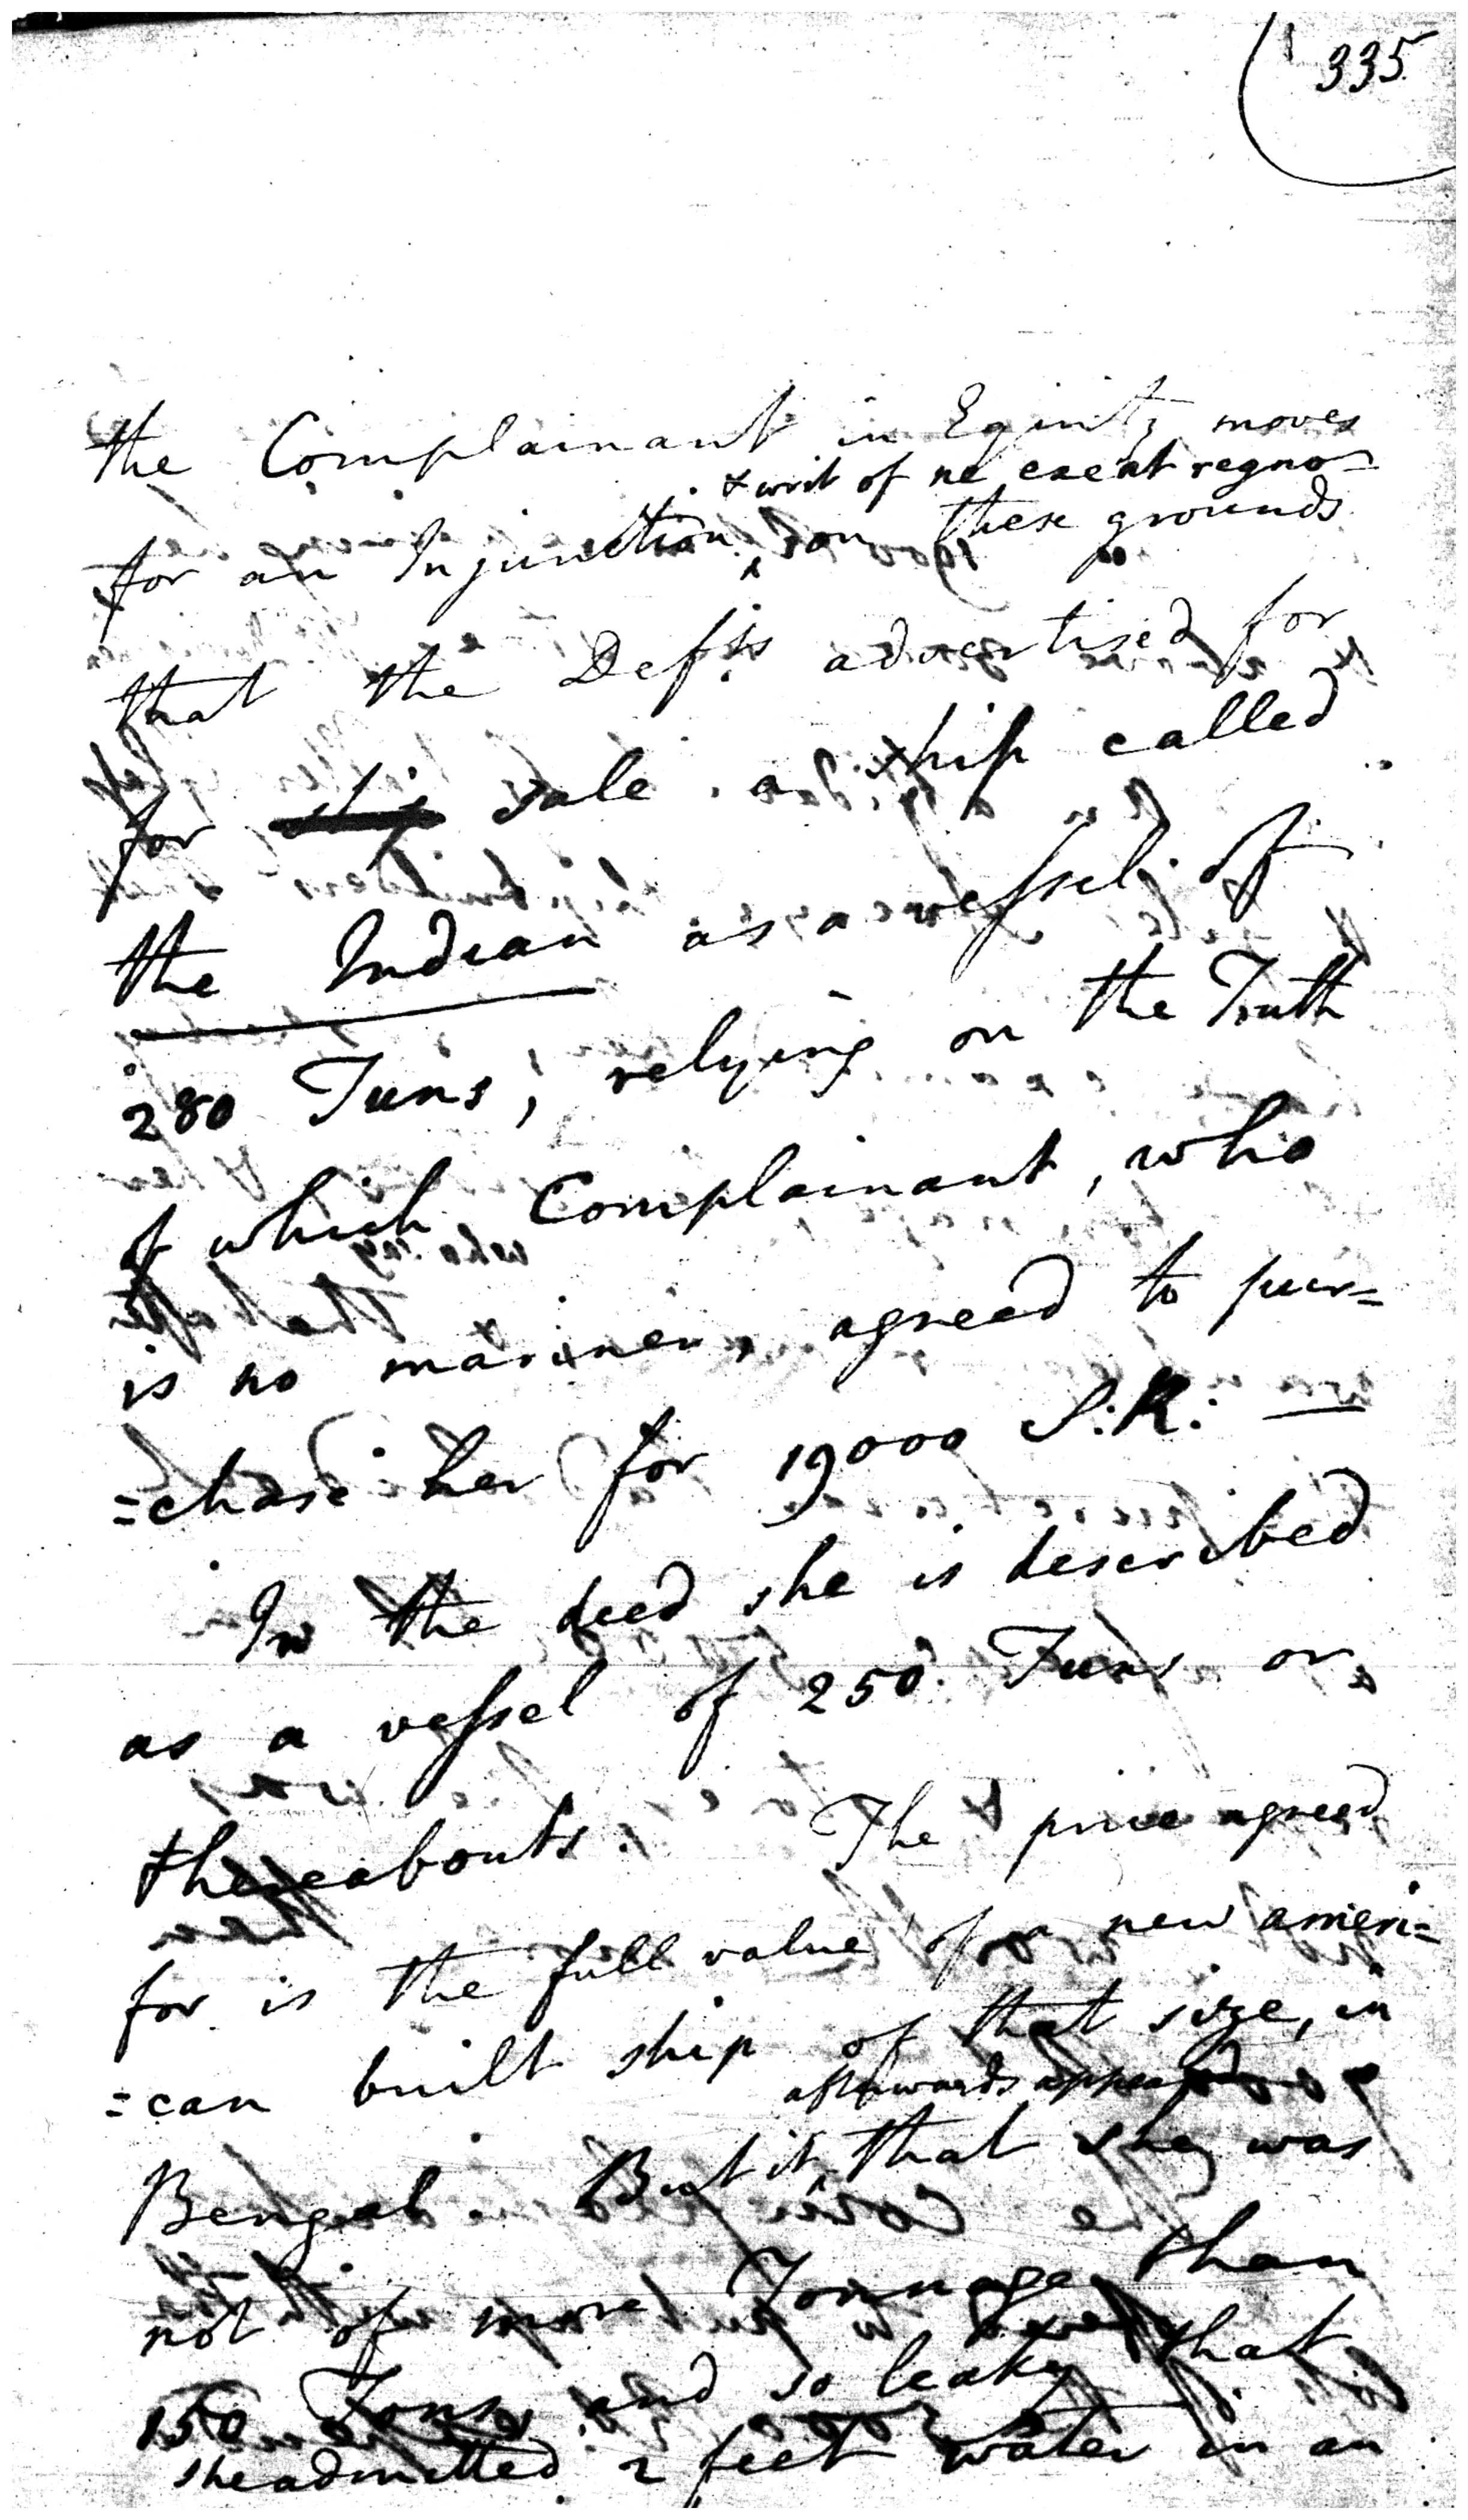 335
the Complainant in Equity moves
& writ of ne exeat regno
for an Injunction, on these grounds
that the Defts advertised for
for sale a ship called
the Indian as a vessel of
280 Tuns; relying on the Truth
of which Complainant, who
is no mariner, agreed to pur=
=chase her for 19000 S.R: —
In the deed she is described
as a vessel of 250 Tuns or
thereabouts. The price agreed
for is the full value of a new ameri=
=can built ship of that size, in
afterwards appeared
Bengal. But it that she was
not of more Tonnage than
150 Tons, and so leaky that
she admitted 2 feet water in an